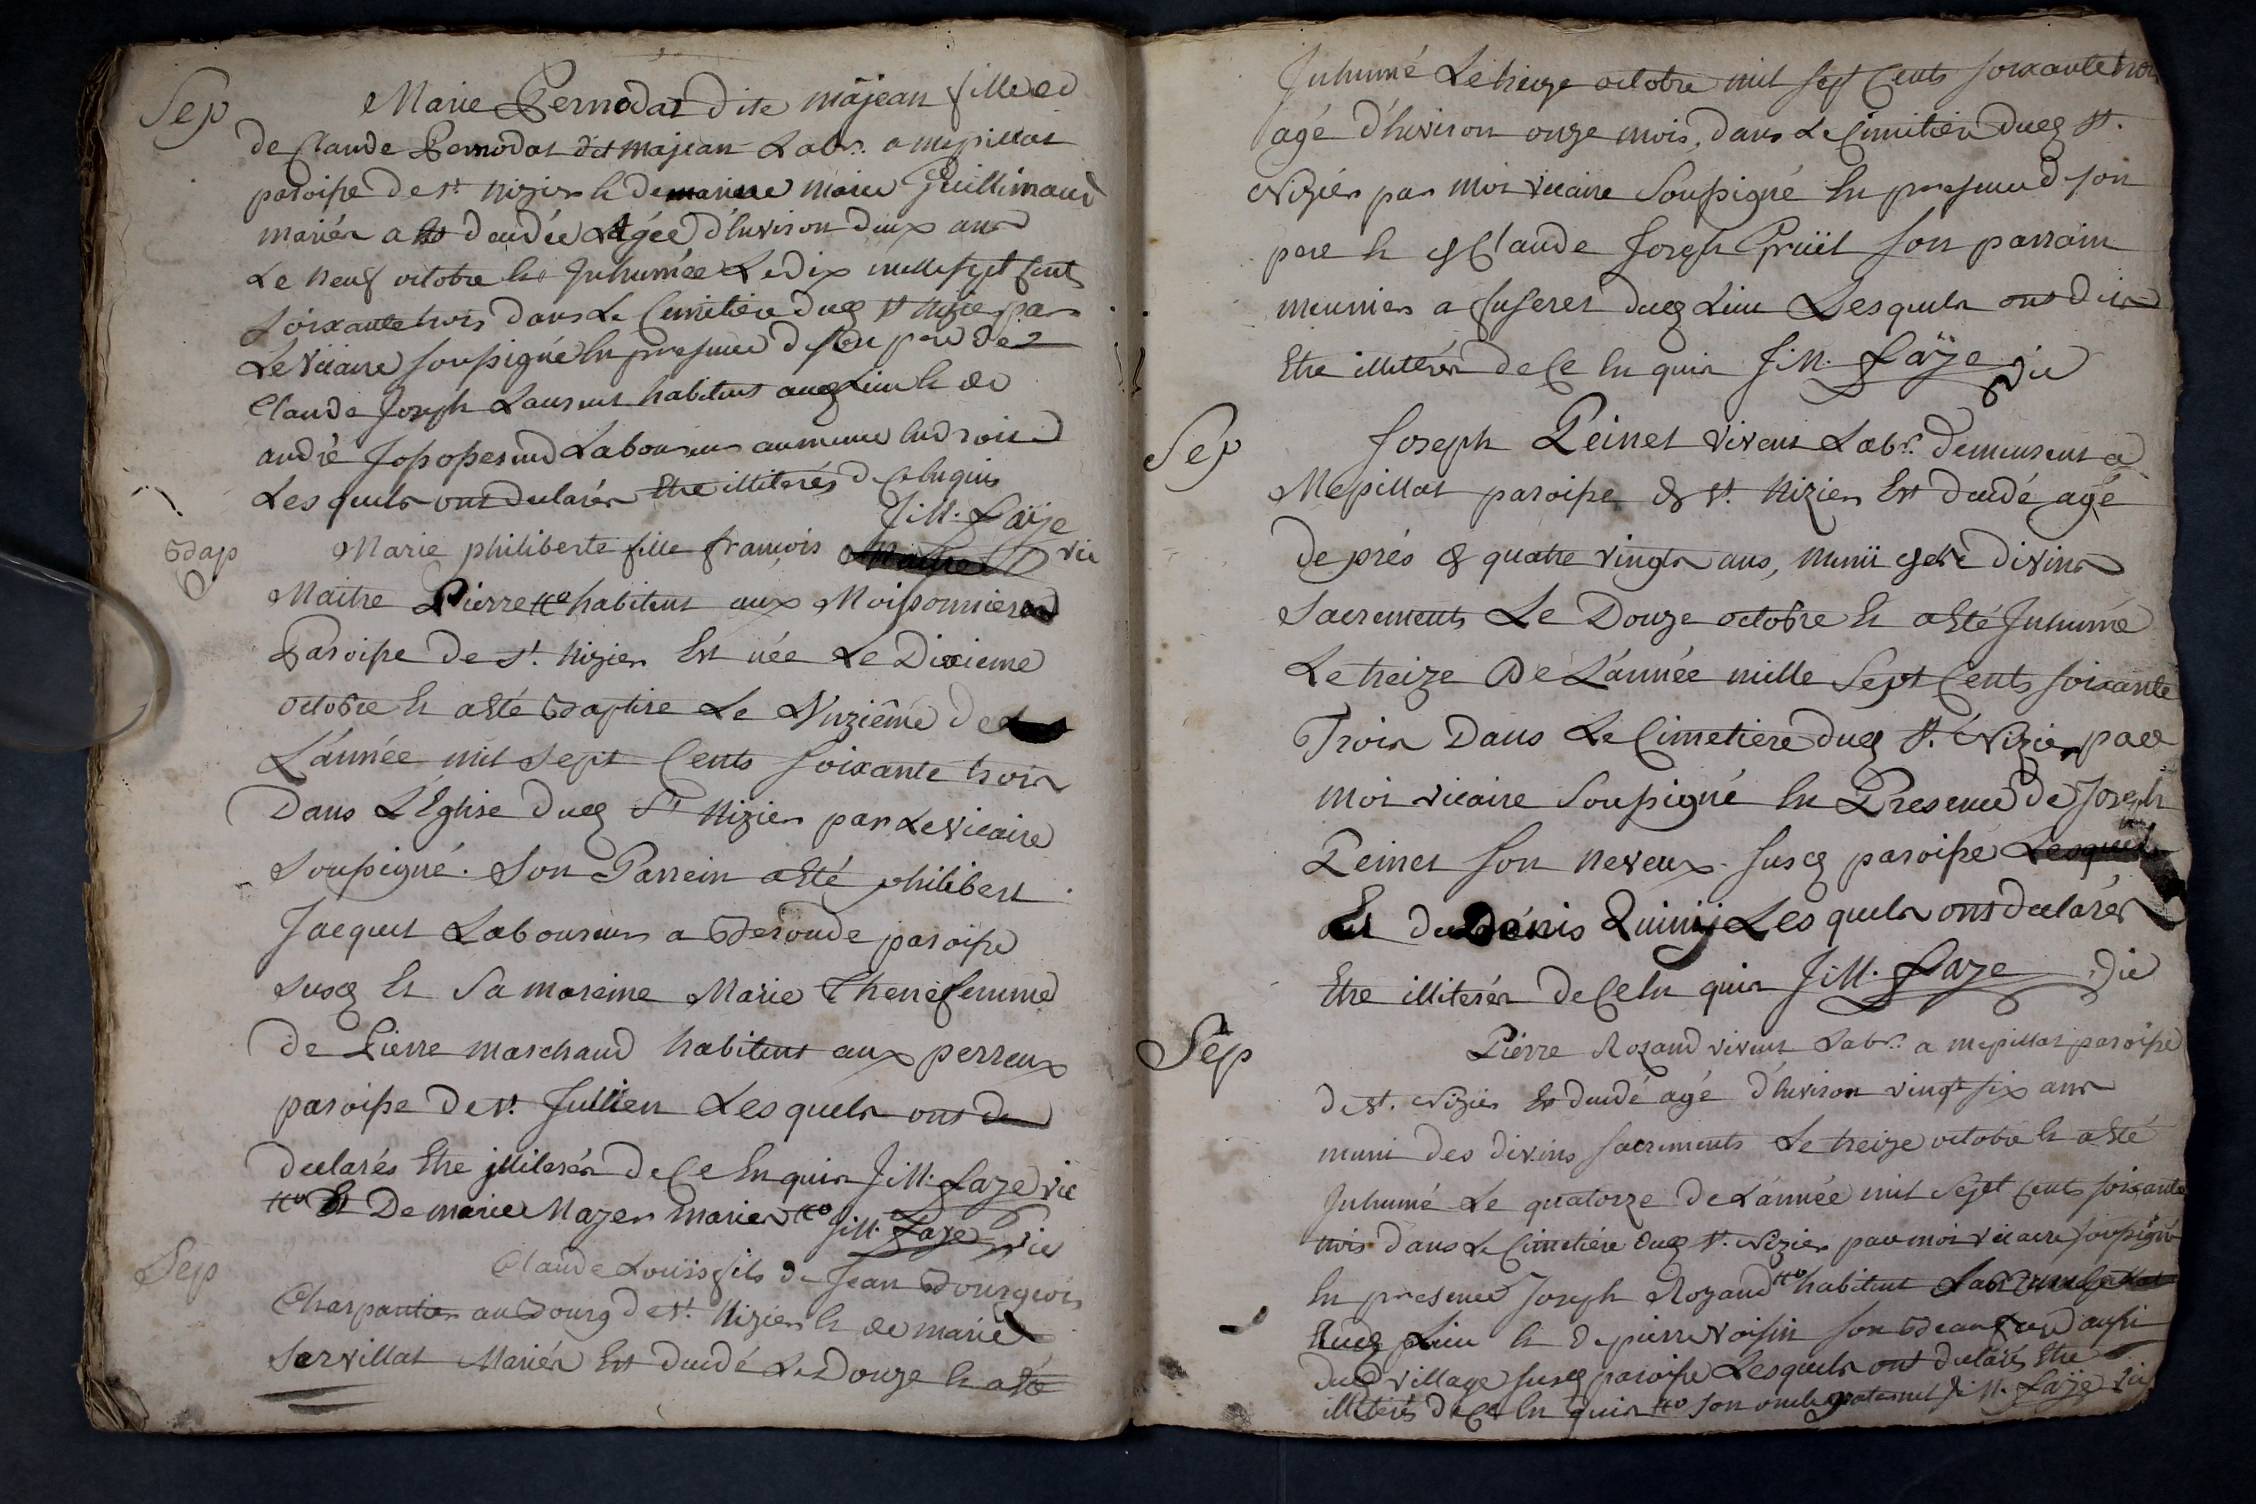 Sep
Marie Pernodat dite majean fille
de Claude Pernodat dit majean Labr. a mepillat
paroisse de st. nizier & de marie Guillimaud
mariés a décédée Agée d'Environ deux ans
Le neuf octobre & Inhumée Le dix mille sept cents
soixante trois dans Le Cimetiere dud. st nizier par
Le vicaire soussigné En presence de son pere de
Claude Joseph Laurent habitant aud. Lieu & de
andré Laboureur au meme Endroit
Lesquels ont declarés Etre illiterés de ce Enquis
J:M: Laÿe vic
Bap
Marie philiberte fille françois
Maitre Pierre habitant aux Moissonniers
Paroisse de st. Nizier Est née Le Dixieme
octobre & a été Baptise Le Unziême de
L'année mil sept Cents soixante trois
Dans L'Eglise dud. st Nizier par Le vicaire
soussigné. Son Parrein a été philibert
Jacquet Laboureur a Beronde paroisse
susd. Et sa mareine Marie Thenefemme
de Pierre marchand habitant aux perreux
paroisse de st. Jullien Lesquels ont de
declarés Etre illiterés de Ce Enquis J:M: Laye vic
Et De marie Mazer mariés J:M: Laye vic
Sep
Claude Louïs fils de Jean Bourgeois
Charpantier au Bourg de st. Nizier & de marie
Servillat Mariés Est décédé Le Douze & a été
Inhumé Le treize octobre mil sept Cents soixante trois
agé d'Environ onze mois, dans Le Cimitiere dud. st.
Nizier par Moi vicaire soussigné En presence de son
pere & de Claude Joseph Pruït son parrain
meunier a dud. Lieu Lesquels ont dit
Etre illiterés de Ce Enquis J:M: Laÿe vic
Sep
Joseph Peinet vivant Labr. demeurant a
Mepillat paroisse de st. Nizier Est décédé agé
de prés de quatre vingts ans, Munïi des divins
Sacrements Le Douze octobre & a été Inhumé
Le treize De L'année mille Sept Cents soixante
Trois Dans Le Cimetiere dud. st. Nizier par
moi vicaire Soussigné En Presence de Joseph
Peinet son neveux susd. paroisse
Et de Dénis Quinij Lesquels ont declarés
Etre illiterés de Ce Enquis J:M: Laye vic
Sep
Pierre Rozand vivant Labr. a mepillat paroisse
de st. Nizier Est décédé agé d'Environ vingt six ans
muni des divins sacrements Le treize octobre & a été
Inhumé Le quatorze de L'année mil sept cents soixante
trois dans Le Cimetiere dud. st. Nizier par moi vicaire soussigné
En presence Joseph Rozand habitant
dud. Lieu & de pierre voisin son Beaufrere aussi
dud. village susd. paroisse Lesquels ont declarés Etre
illiterés de Ce Enquis son oncle paternel J:M: Laÿe vic